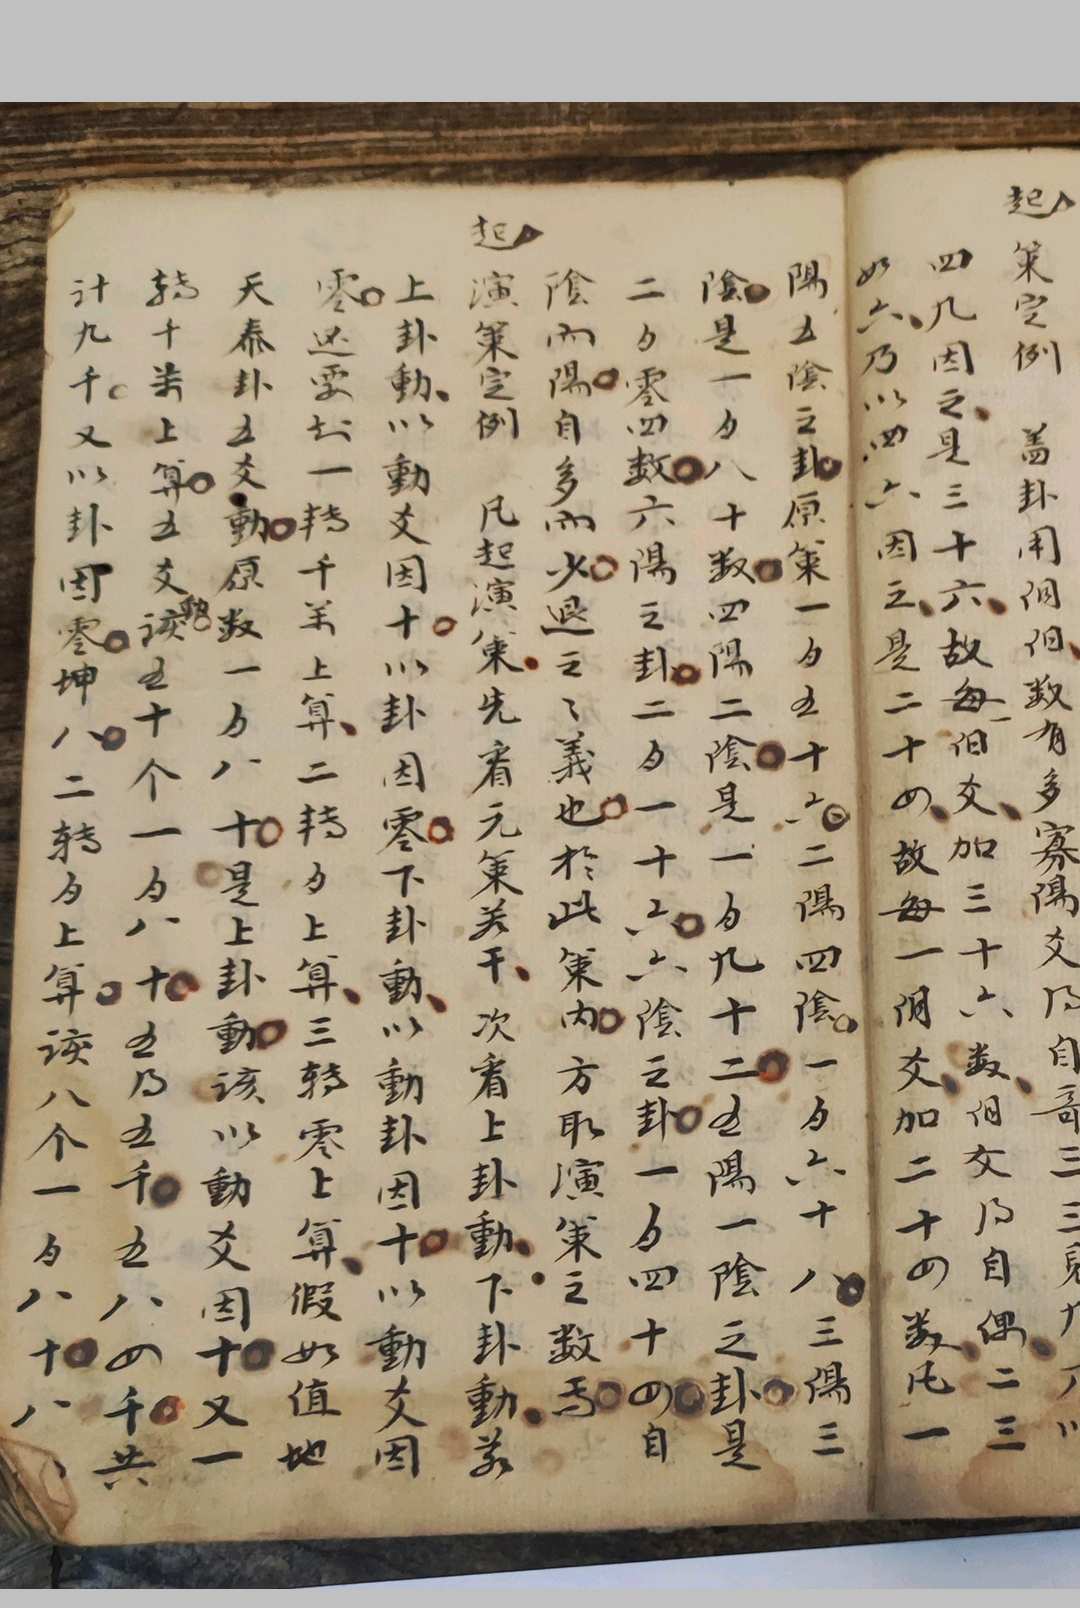 起
策定例　蓋卦用佀佀数有多寡陽爻乃自奇三三見九
四九因之是三十六故每一佀爻加三十六数佀爻乃自偶二三
如六乃以四六因之是二十四故每一阴爻加二十四数凡一
陽五陰之卦原策一百五十六二陽四陰一百六十八三陽三
陰是一百八十数四陽二陰是一百九十二五陽一陰之卦是
二百零四数六陽之卦二百一十六六陰之卦一百四十四自
陰而陽自多而少退之之義也於此策内方取演策之数焉
起
演策定例　凡起演策先看元策若干次看上卦動下卦動若
上卦動以動爻因十以卦因零下卦動以動卦因十以動爻因
零还要知一轉千并上算二轉百上算三轉零上算假如值地
天泰卦五爻動原数一百八十是上卦動該以動爻因十又一
轉千並上算五爻動該五十个一百八十五乃五千五八四千共
計九千又以卦因零坤八二轉百上算該八个一百八十八八